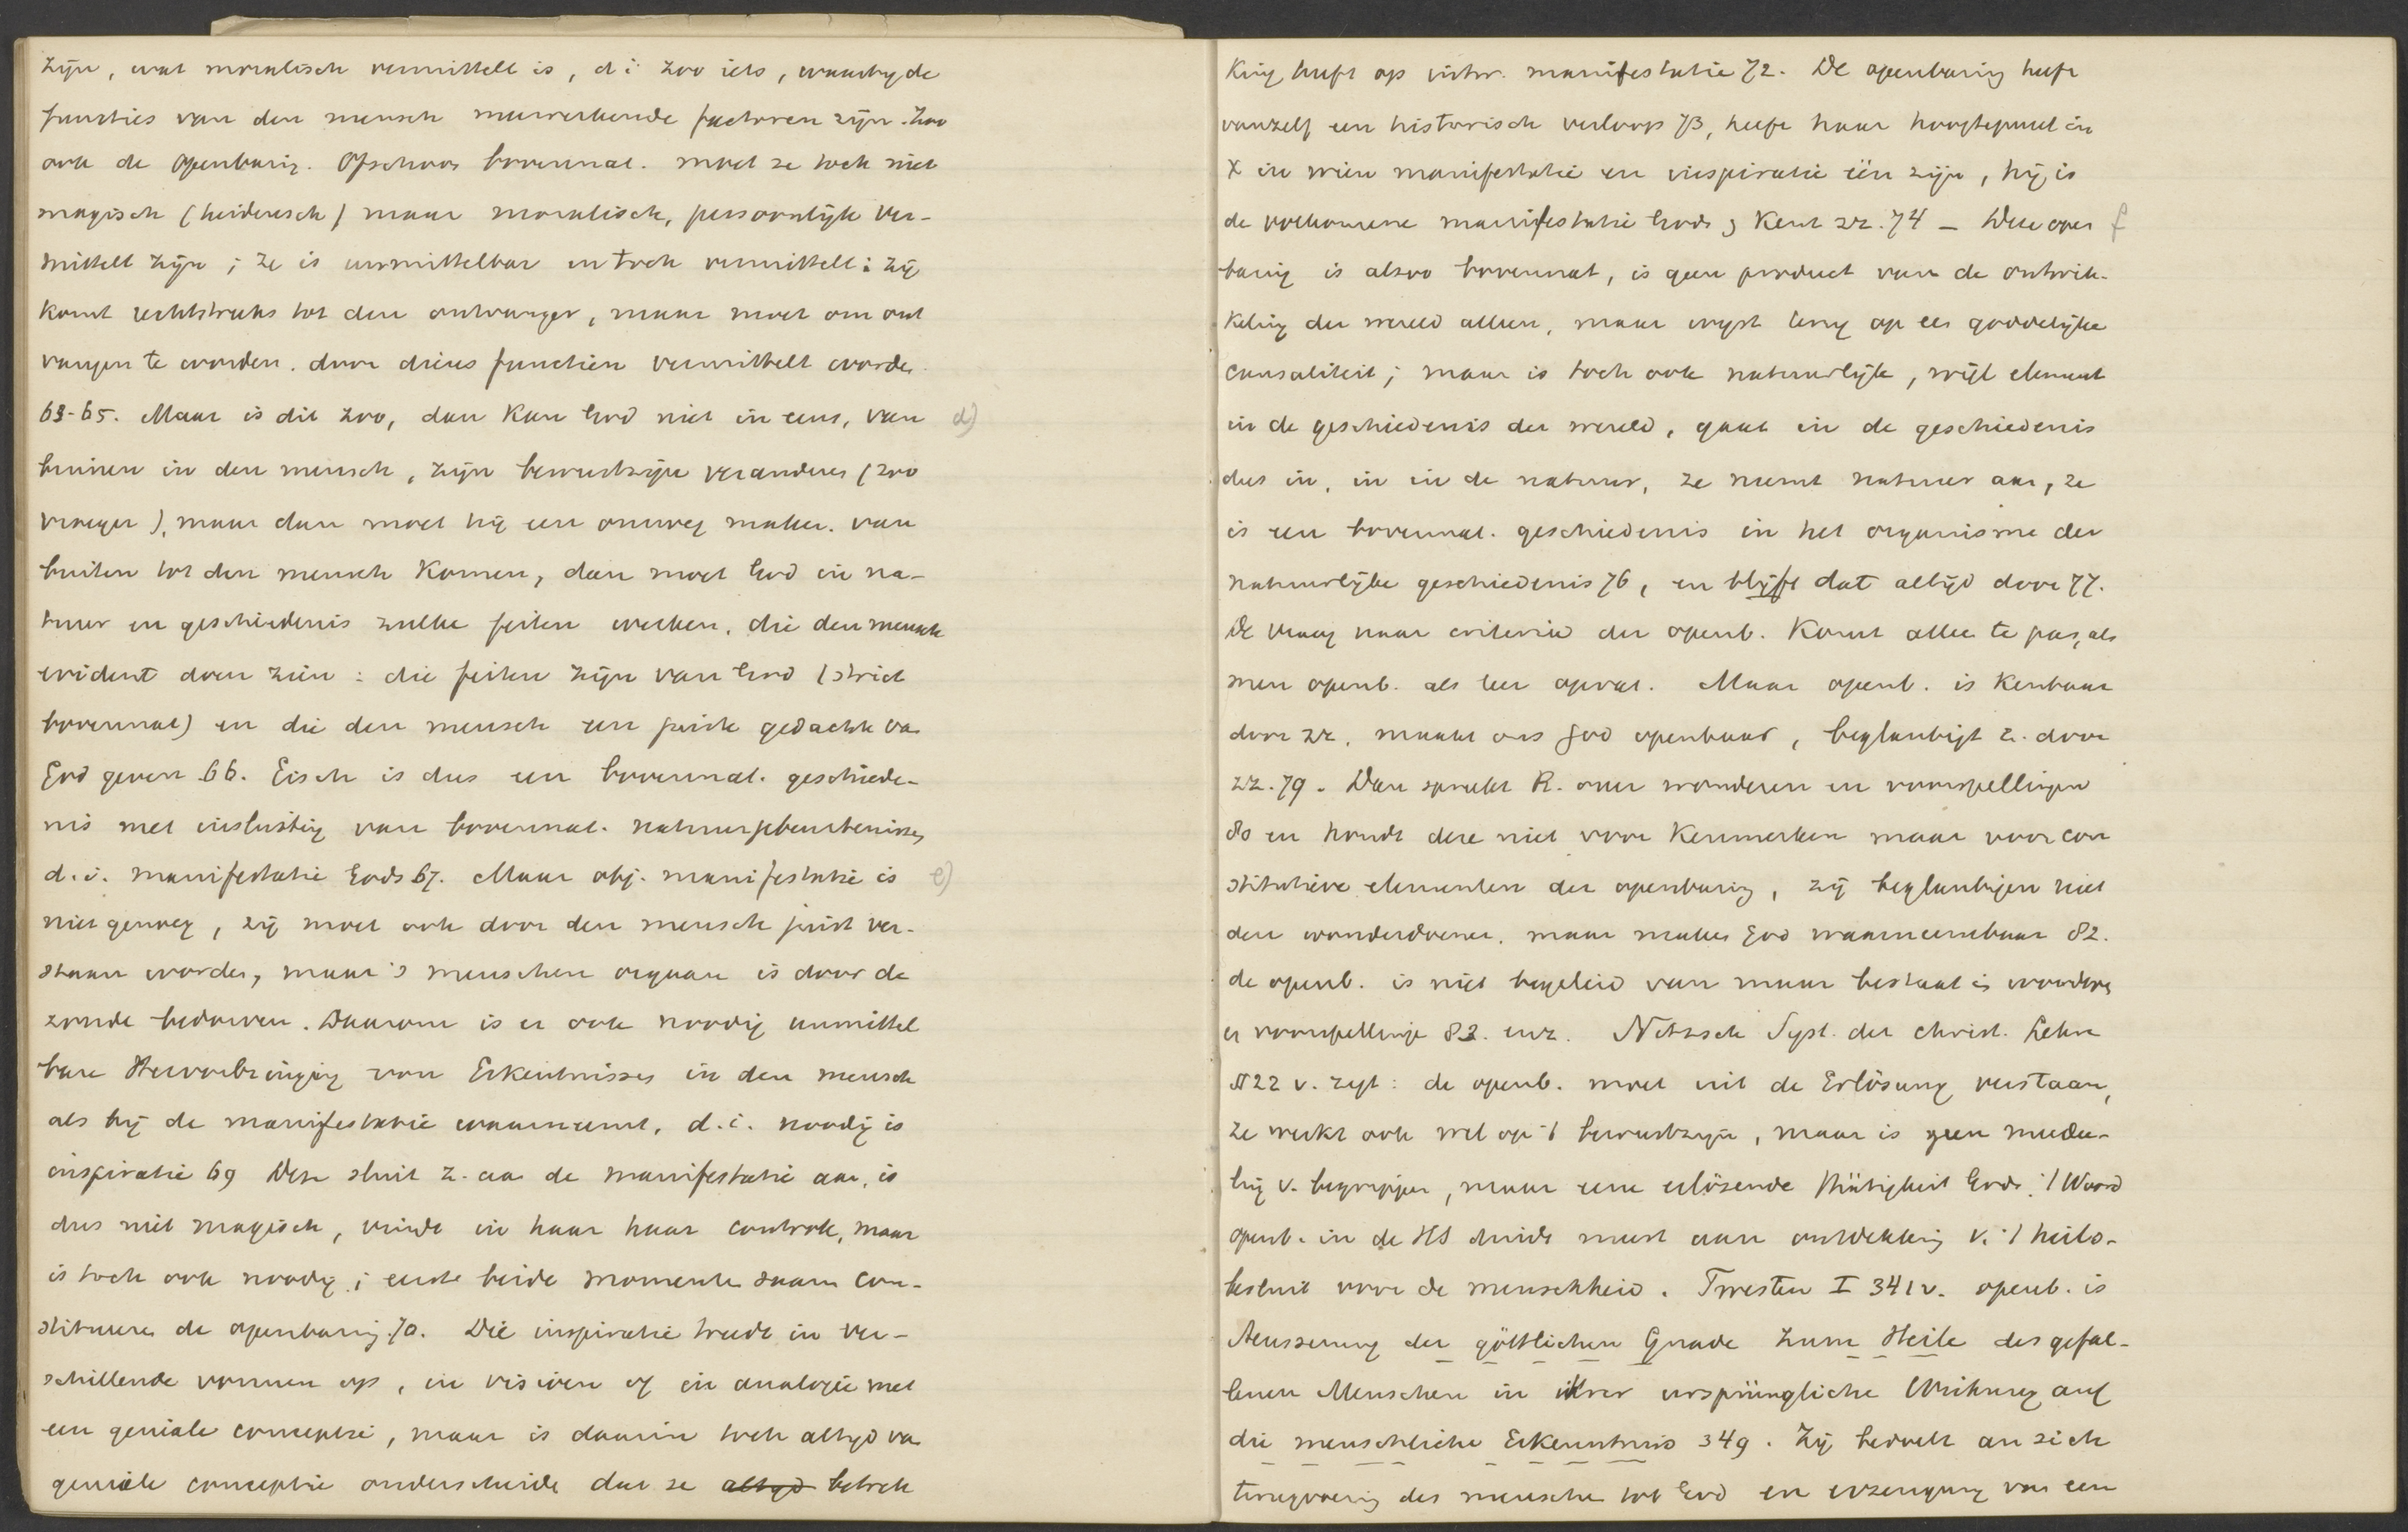 zijn, wat moralisch vermittelt is, d i zoo iets, waarby de
functies van den mensch meewerkende factoren zijn. Zoo
ook de openbaring. Ofschoon bovennat. moet ze toch niet
magisch (heidensch) maar moralisch, persoonlijk ver-
mittelt zijn; ze is unmittelbar en toch vermittelt: zij
komt rechtstreeks tot den ontvanger, maar moet om ont
vangen te worden, door diens functiën vermittelt worden.
63-65. Maar is dit zoo, dan kan God niet in eens, van d)
binnen in den mensch, zijn bewustzijn veranderen (zoo
vroeger), maar dan moet hij een omweg maken, van
buiten tot den mensch komen, dan moet God in na-
tuur en geschiedenis zulke feiten werken, die den mensch
evident doen zien: die feiten zijn van God (strict
bovennat) en die den mensch een juiste gedachte van
God geven 66. Eisch is dus een bovennat. geschiede-
nis met insluiting van bovennat. natuurgebeurtenissen,
d.i. manifestatie Gods 67. Maar obj. manifestatie is e)
niet genoeg, zij moet ook door den mensch juist ver-
staan worden, maar 's menschen orgaan is door de
zonde bedorven. Daarom is er ook noodig unmittel
bare Hervorbringung von Erkentnissen in den mensch
als hij de manifestatie waarneemt, d.i. noodig is
inspiratie 69 Deze sluit z. aan de manifestatie aan, is
dus niet magisch, vindt in haar haar controle, maar
is toch ook noodig; eerst beide momenten saam con-
stitueren de openbaring. 70. Die inspiratie treedt in ver-
schillende vormen op, in visioen of in analogie met
een geniale conceptie, maar is daarin toch altyd van
geniale conceptie onderscheiden dat ze altyd betrek
king heeft op uitw. manifestatie 72. De openbaring heeft
vanzelf een historisch verloop 73, heeft haar hoogtepunt in
X in wien manifestatie en inspiratie één zijn, hij is
de volkomene manifestatie Gods, kent zr. 74 – Deze open f
baring is alzoo bovennat, is geen product van de ontwik-
keling der wereld alleen, maar wyst terug op een goddelijke
causaliteit; maar is toch ook natuurlijk, wijl element
in de geschiedenis der wereld, gaat in de geschiedenis
dus in, in in de natuur, ze neemt natuur aan, ze
is een bovennat. geschiedenis in het organisme der
natuurlijke geschiedenis 76, en blijft dat altijd door 77.
De vraag naar criteria der openb. komt alleen te pas, als
men openb. als leer opvat. Maar openb. is kenbaar
door zz. maakt ons God openbaar, beglaubigt z. door
zz. 79. Dan spreekt R. over wonderen en voorspellingen
80 en houdt deze niet voor kenmerken maar voor con
stitutieve elementen der openbaring, zij beglaubigen niet
den wonderdoener, maar maken God waarneembaar 82.
de openb. is niet begeleid van maar bestaat in wonderen
en voorspelling 83. enz. Nitzsch Syst. der christ. Lehre
§22 v. zegt: de openb. moet uit de Erlösung verstaan,
ze werkt ook wel op 't bewustzijn, maar is geen mededee-
ling v. begrippen, maar eene erlösende Thätigkeit Gods. 't Woord
openb. in de HS duidt meest aan ontdekking v. 't heils-
besluit voor de menschheid. Twesten I 341 v. openb. is
Aeusserung der göttlichen Gnade zum Heile des gefal-
lenen Menschen in ihrer ursprüngliche Wirkung auf
die menschliche Erkenntnis 349. Zij bedoelt an sich
terugvoering des menschen tot God en erzeugung van een